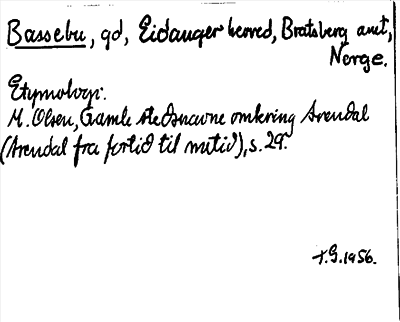 Bassebu, gd, Eidanger herred, Bratsberg amt,
Norge.
Etymologi:
M. Olsen, Gamle stedsnavne omkring Arendal
(Arendal fra fortid til nutid), s. 29.
T.G. 1956.